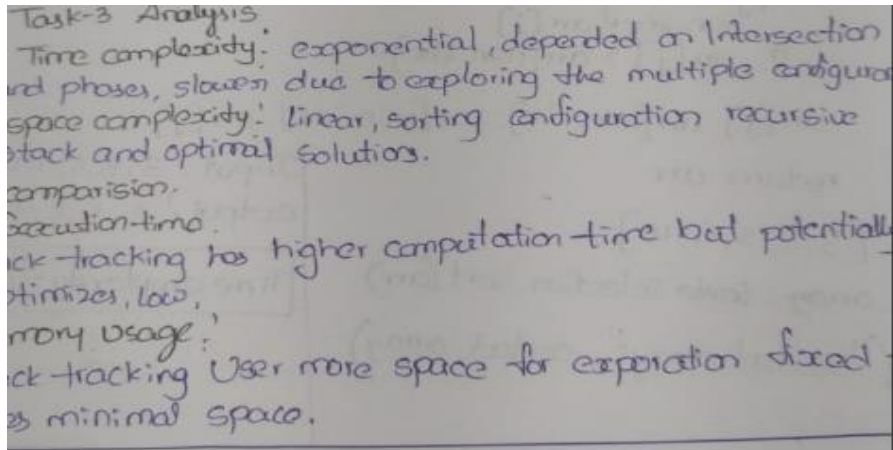 Task-3 Analysis
Time complexity: exponential, depended on Intersection
nd phases, slower due to exploring the multiple configura
space complexity: linear, sorting configuration recursive
stack and optimal solutions.
comparision.
Execustion-time.
ck-tracking has higher computation time but potentially
otimizes, low,
mory usage:
ck-tracking User more space for exporation fixed
es minimal space.